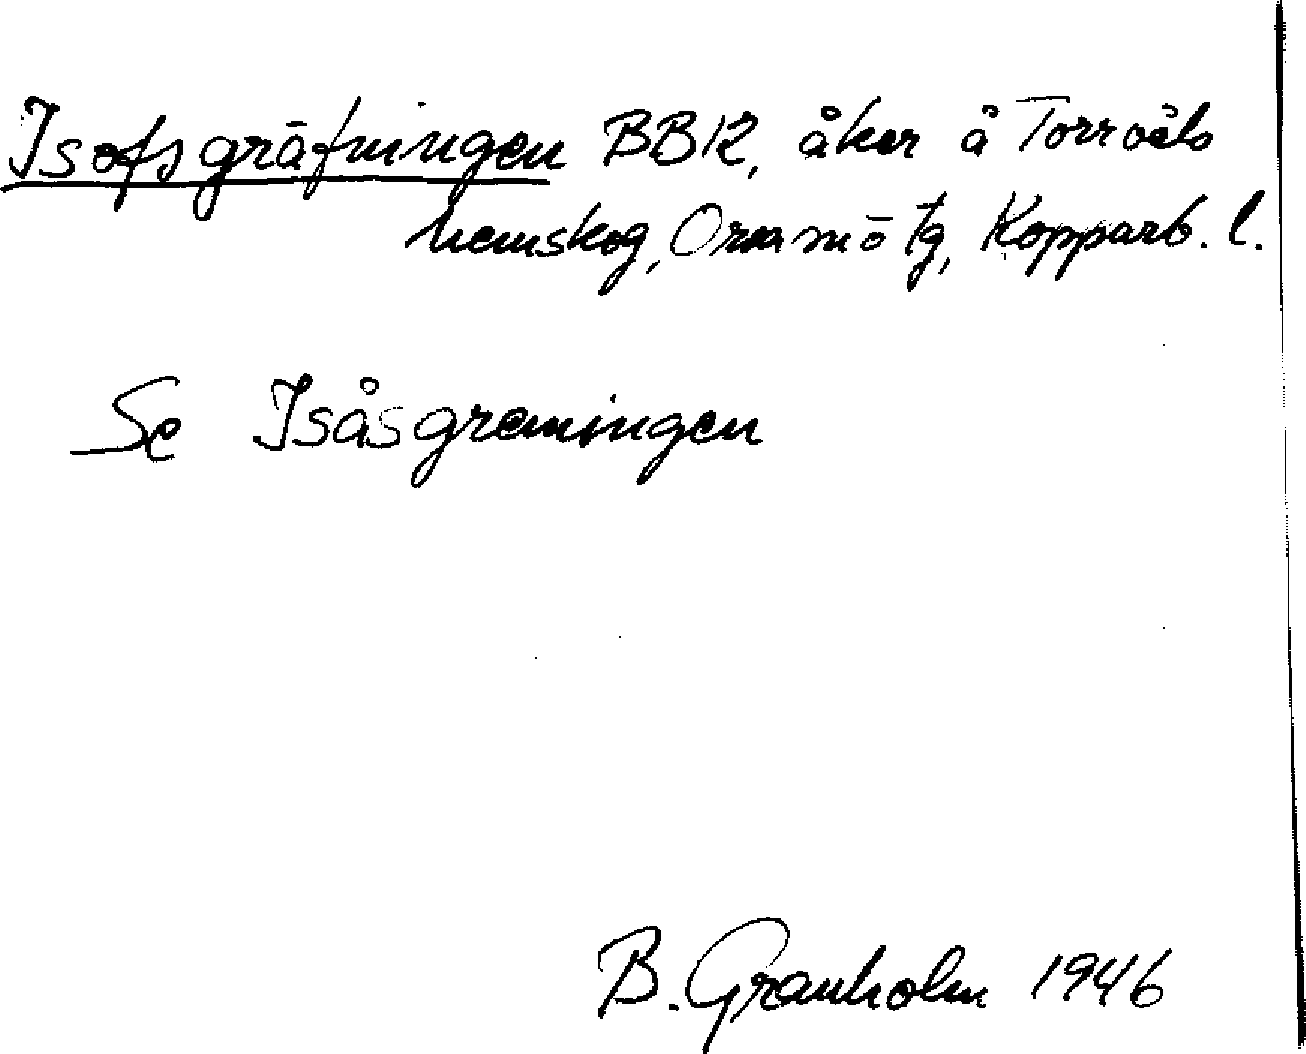 Isofsgräfningen BBR, åker å Torrvåls
hemskog, Orsa mö tg, Kopparb. l.
Se Isåsgremingen
B. Granholm 1946